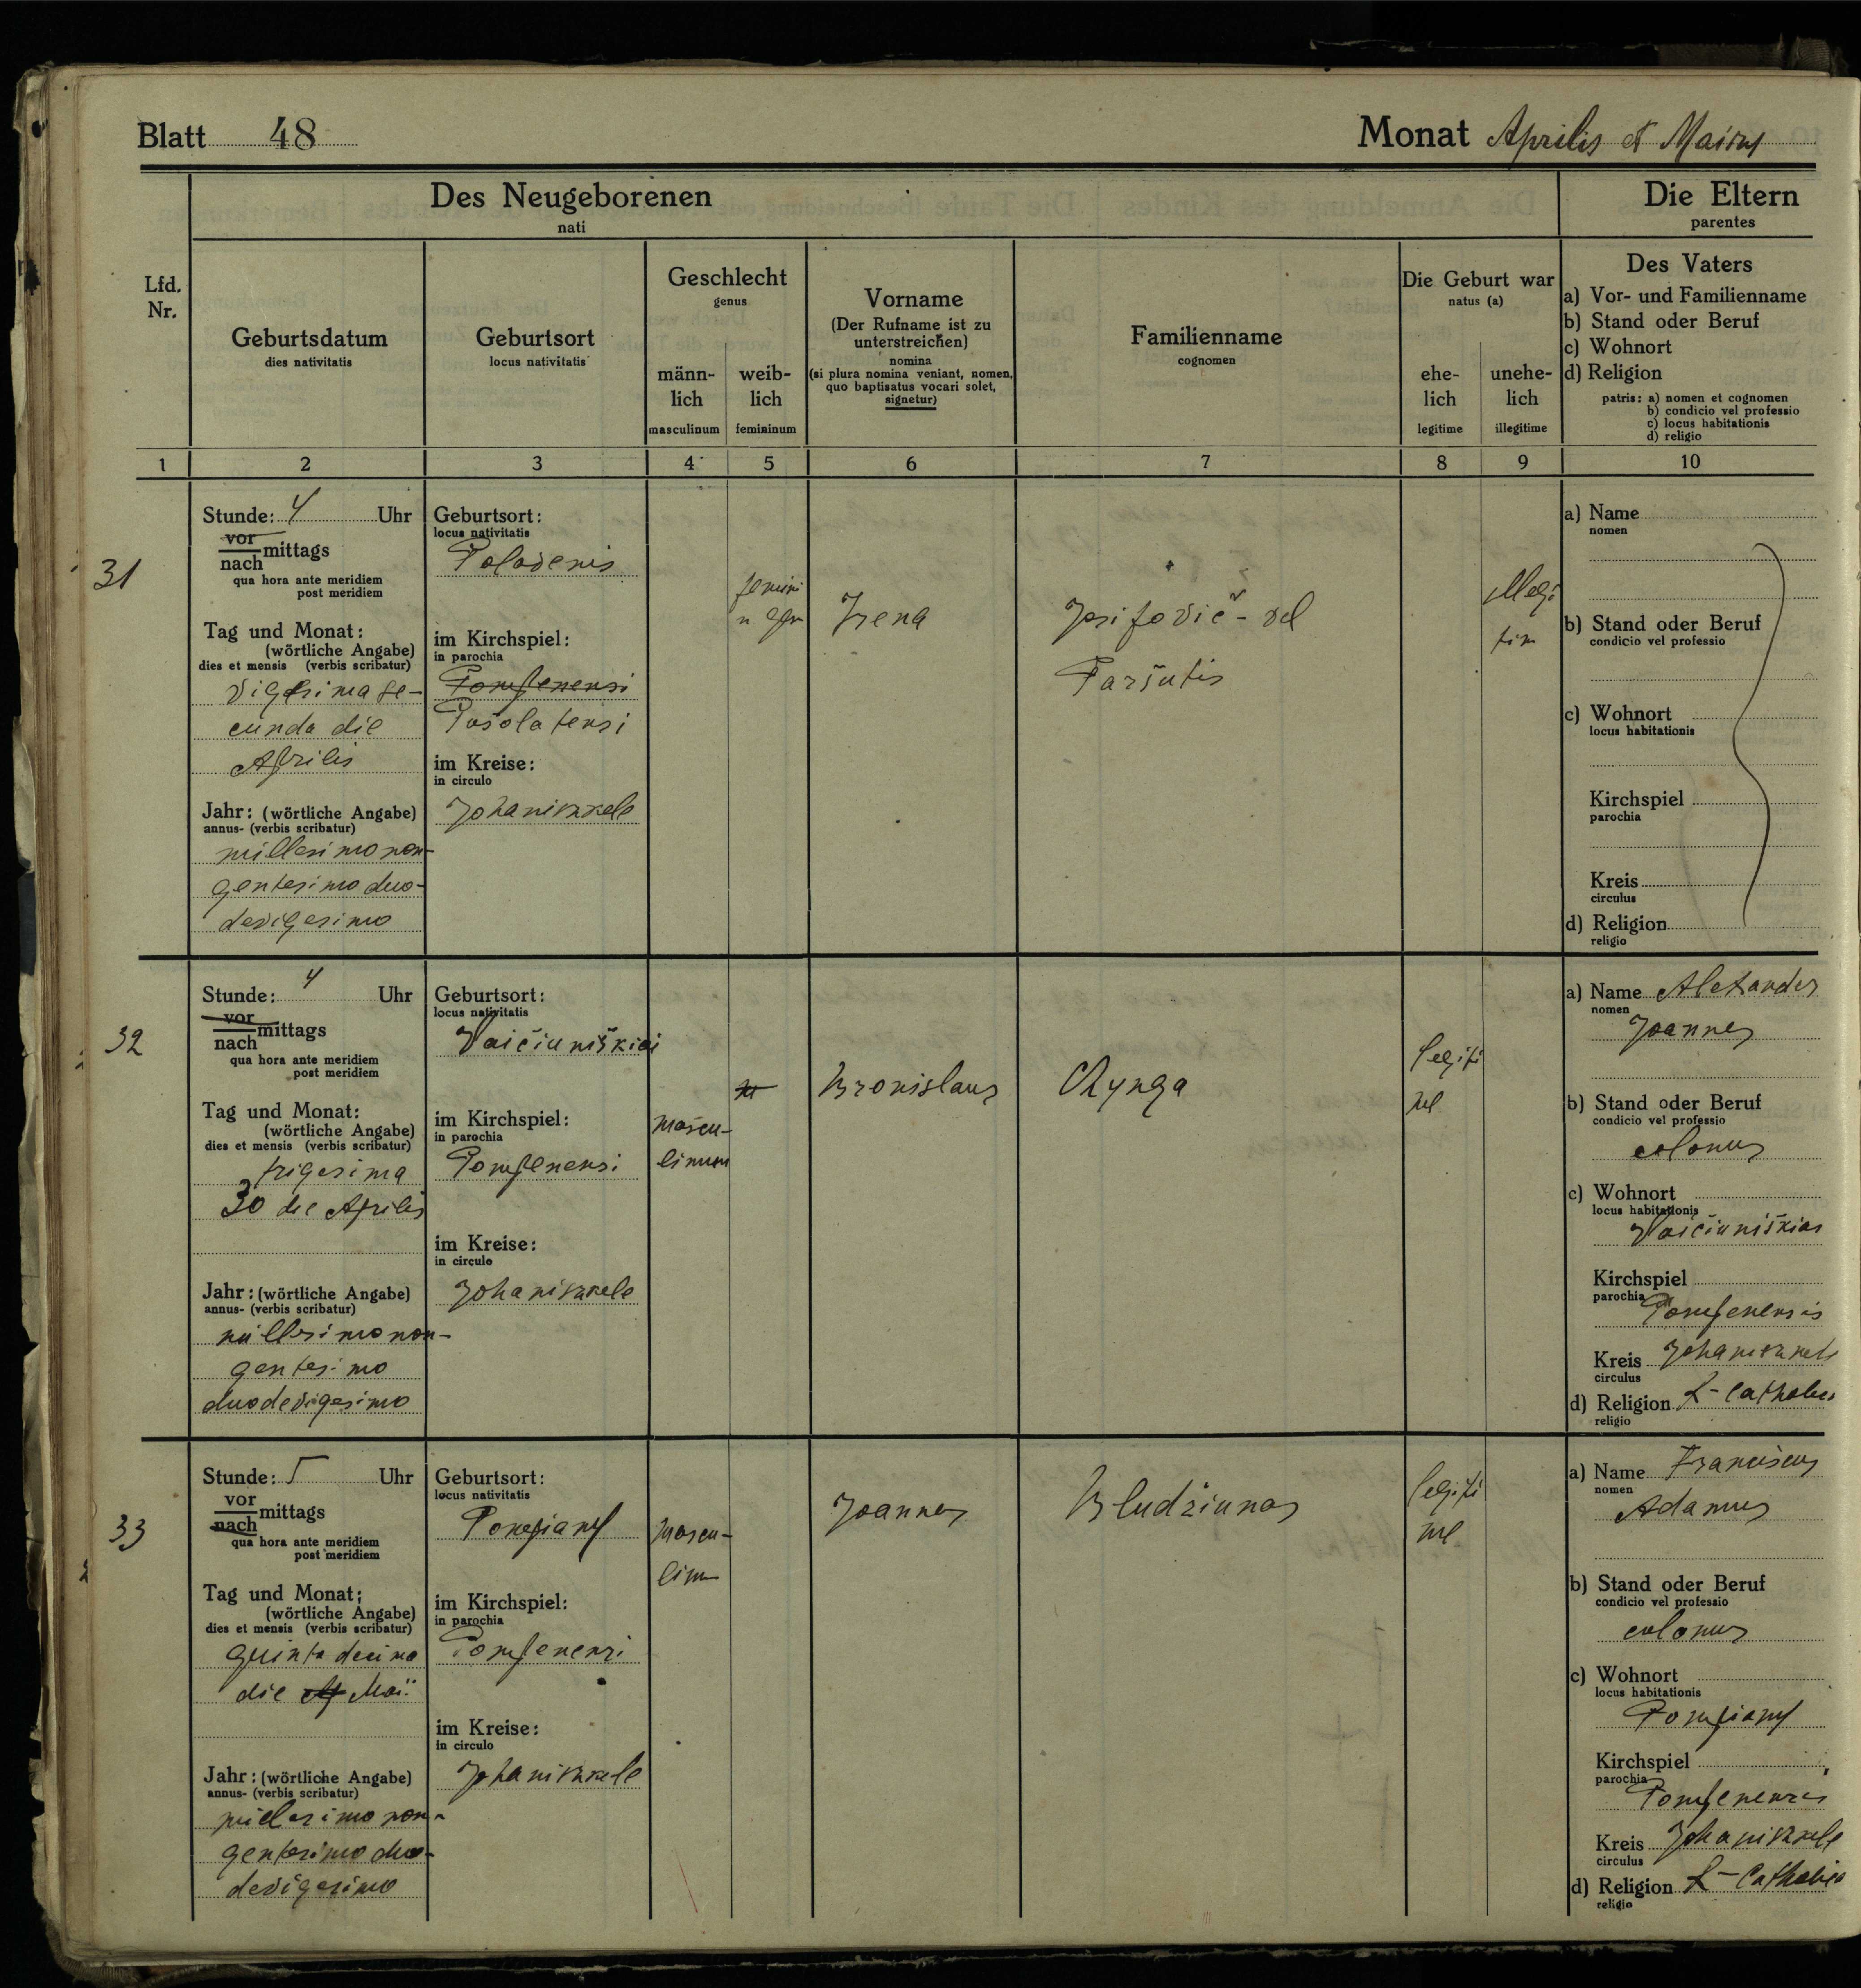 Blatt 48
Monat Aprilis et Maius
Des Neugeborenen
nati
Die Eltern
parentes
Lfd.
Nr.
Geburtsdatum
dies nativitatis
Geburtsort
locus nativitatis
Geschlecht
genus
männ-
lich
masculinum
weib-
lich
femininum
Vorname
(Der Rufname ist zu
unterstreichen)
nomina
(si plura nomina veniant, nomen,
quo baptisatus vocari solet,
signetur)
Familienname
cognomen
Die Geburt war
natus (a)
ehe-
lich
legitime
unehe-
lich
illegitime
Des Vaters
a) Vor- und Familienname
b) Stand oder Beruf
c) Wohnort
d) Religion
patris: a) nomen et cognomen
b) condicio vel professio
c) locus habitationis
d) religio
1 2 3 4 5 6 7 8 9 10
31
Stunde: 4 Uhr
vor
nach mittags
qua hora ante meridiem
post meridiem
Tag und Monat:
(wörtliche Angabe)
dies et mensis (verbis scribatur)
vigesima se-
cunda die
Aprilis
Jahr: (wörtliche Angabe)
annus- (verbis scribatur)
millesimo non-
gentesimo duo-
devigesimo
Geburtsort:
locus nativitatis
im Kirchspiel:
in parochia
im Kreise:
in circulo
Johaniszkele
Irena
illegi
tim
a) Name
nomen
b) Stand oder Beruf
condicio vel professio
c) Wohnort
locus habitationis
Kirchspiel
parochia
Kreis
circulus
d) Religion
religio
32
Stunde: 4 Uhr
vor
nach mittags
qua hora ante meridiem
post meridiem
Tag und Monat:
(wörtliche Angabe)
dies et mensis (verbis scribatur)
trigesima
30 die Aprilis
Jahr: (wörtliche Angabe)
annus- (verbis scribatur)
millesimo non-
gentesimo
duodevigesimo
Geburtsort:
locus nativitatis
Vaičiuniškiai
im Kirchspiel:
in parochia
Pompenensi
im Kreise:
in circulo
Johaniszkele
mascu-
linum
Bronislaus
Rynga
legiti
me
a) Name Alexander
nomen
Joannes
b) Stand oder Beruf
condicio vel professio
colonus
c) Wohnort
locus habitationis
Vaičiuniškias
Kirchspiel
parochia
Pompenensis
Kreis Johaniszkele
circulus
d) Religion R-Catholica
religio
33
Stunde: 5 Uhr
vor
nach mittags
qua hora ante meridiem
post meridiem
Tag und Monat:
(wörtliche Angabe)
dies et mensis (verbis scribatur)
quinta decima
die Maii
Jahr: (wörtliche Angabe)
annus- (verbis scribatur)
millesimo non-
gentesimo duo-
devigesimo
Geburtsort:
locus nativitatis
Pompiany
im Kirchspiel:
in parochia
Pompenensi
im Kreise:
in circulo
Johaniszkele
mascu-
linum
Joannes
Bludžiunas
legiti
me
a) Name Franciscus
nomen
Adamus
b) Stand oder Beruf
condicio vel professio
colonus
c) Wohnort
locus habitationis
Pompiany
Kirchspiel
parochia
Pompenensis
Kreis Johaniszkele
circulus
d) Religion R-Catholica
religio